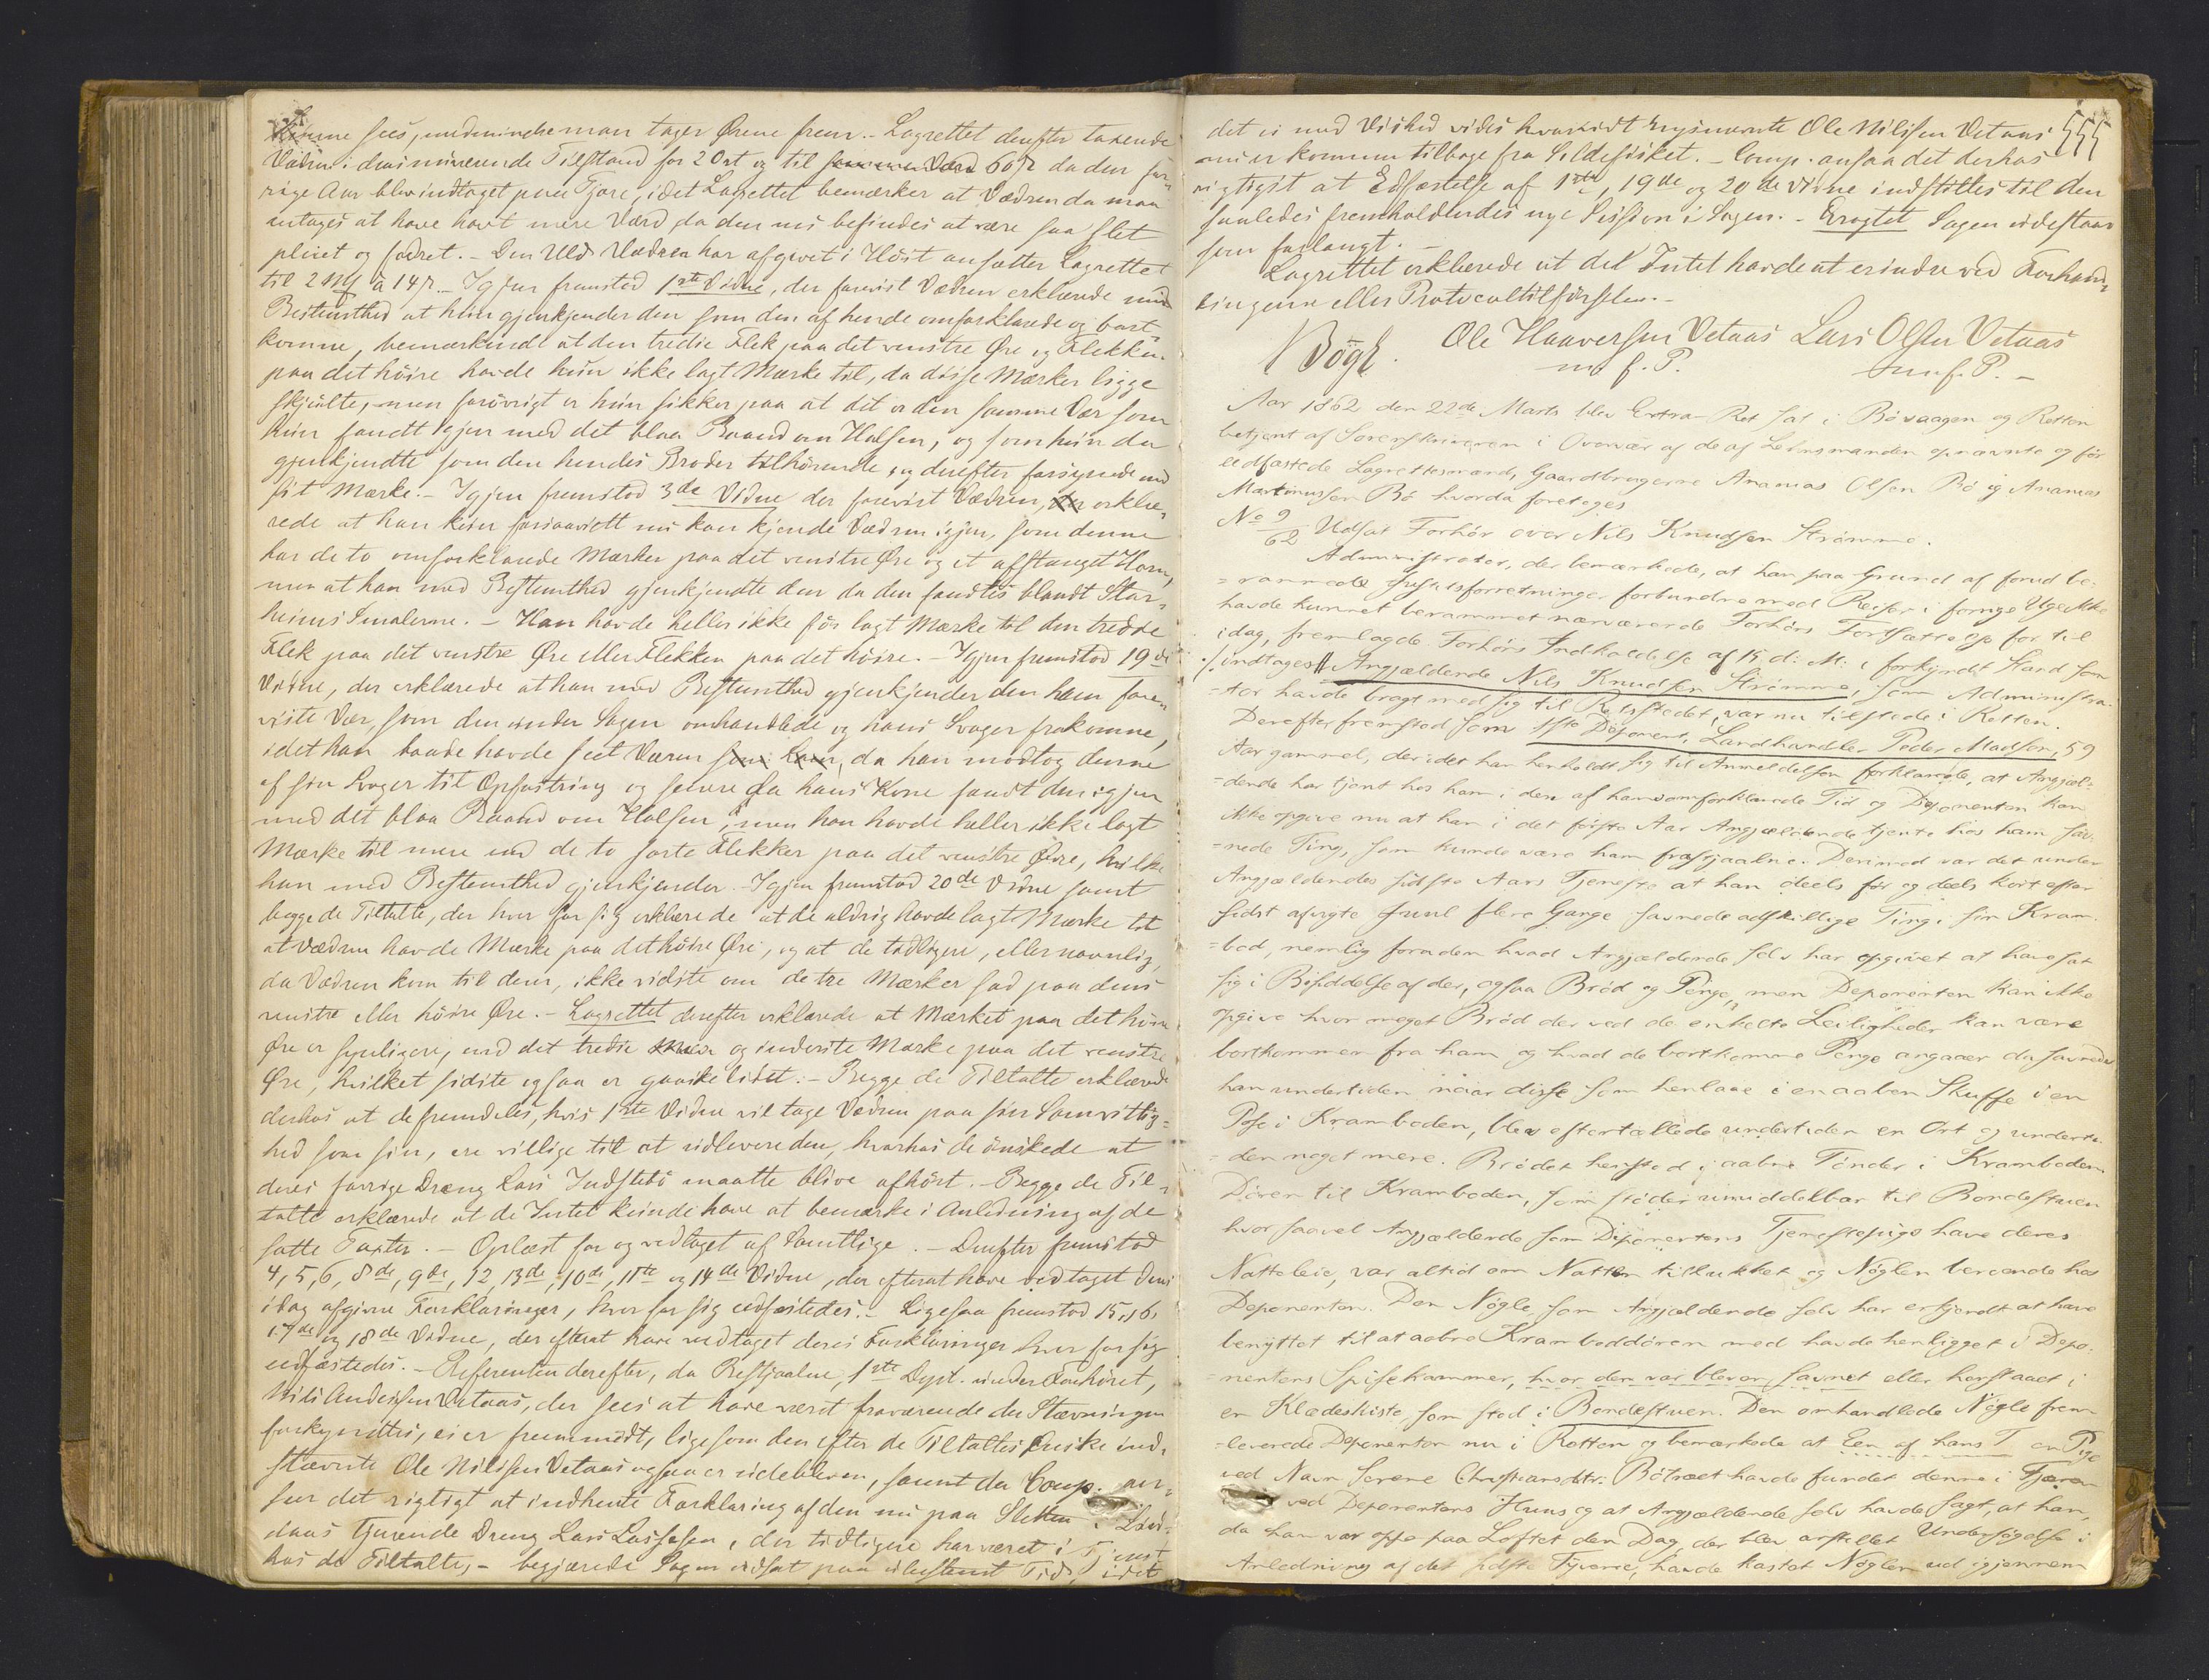 kunne sees, medmindre man tager Ørene frem. - Lagrettet derefter taxerede
Vædren i dens nuværende Tilstand for 2 Ort og til 60 ß da den for-
rige Aar blev indtaget paa Fjøre, idet Lagrettet bemærker at Vædren da maa
antages at have havt mere Værd, da den nu befindes at være saa slet
pleiet og fodret. - Den Uld Vædren har afgivet i Høst ansatter Lagrettet
til 2 Mk à 14 ß. - Igjen fremstod 1ste Vidne, der forevist Vædren erklærede med
Bestemthed at hun gjenkjender den som den af hende omforklarede og bort-
komne, bemærkende at den tredie Flek paa det venstre Øre og Flekken
paa det höire havde hun ikke lagt Mærke til, da disse Mærker ligge
skjulte, men forövrigt er hun sikker paa at det er den samme Vær som
hun fandt igjen med det blaa Baand om Halsen, og som hun da
gjenkjendte som den hendes Broder tilhörende og derefter forsynede med
sit Mærke. - Igjen fremstod 3de Vidne der forevist Vædren, erklæ-
rede at han kun forsaavidt nu kan kjende Vædren igjen, som denne
har de to omforklarede Mærker paa det venstre Øre og et afstanget Horn,
men at han med Bestemthed gjenkjendte den da den fandtes blandt Stur-
heims Smalerne. - Han havde heller ikke för lagt Mærke til den tredie
Flek paa det venstre Øre eller Flekken paa det höire. - Igjen fremstod 19de
Vidne, der erklærede at han med Bestemthed gjenkjender den ham fore-
viste Vær, som den under Sagen omhandlede og hans Svoger frakomne,
idet han baade havde seet Væren da han modtog denne
af sin Svoger til Opfostring og senere da hans Kone fandt den igjen
med det blaa Baand om Halsen; men han havde heller ikke lagt
Mærke til mere end de to sorte Flekker paa det venstre Øre, hvilke
han med Bestemthed gjenkjender. - Igjen fremstod 20de Vidne samt
begge de Tiltalte, der hver for sig erklærede at de aldrig havde lagt Mærke til
at Vædren havde Mærke paa det höire Øre, og at de tidligere, eller navnlig,
da Vædren kom til dem, ikke vidste om de tre Mærker sad paa dens
venstre eller höire Øre. - Lagrettet derefter erklærede at Mærket paa det höire
Øre er synligere, end det tredie og inderste Mærke paa det venstre
Øre, hvilket sidste ogsaa er ganske lidet. - Begge de Tiltalte erklærede
derhos at de fremdeles, hvis 1ste Vidne vil tage Vædren paa sin Samvittig-
hed som sin, ere villige til at udlevere den, hvorhos de önskede at
deres forrige Dreng Lars Indstebö maatte blive afhört. - Begge de Til-
talte erklærede at de Intet kunde have at bemærke i Anledning af de
satte Taxter. - Oplæst for og vedtaget af Samtlige. - Derefter fremstod
4, 5, 6, 8de, 9de, 12, 13de, 10de, 11te og 14de Vidne, der efterat have vedtaget deres
idag afgivne Forklaringer, hver for sig edfæstedes. - Ligesaa fremstod 15, 16,
17de og 18de Vidne, der efterat have vedtaget deres Forklaringer hver for sig
edfæstedes. - Referenten derefter, da Bestjaalne, 1ste Dept. under Forhöret,
Nils Andersen Vetaas, der sees at have været fraværende da Stævningen
forkyndtes, ei er fremmödt, ligesom den efter de Tiltaltes Önske ind-
stævnte Ole Nilssen Vetaas ogsaa er udebleven, samt da Comp. an-
seer det rigtigt at indhente Forklaring af den nu paa Sletten i Lind-
aas tjenende Dreng Lars Lassesen, der tidligere har været i Tjenst
hos de Tiltalte, - begjærede Sagen udsat paa ubestemt Tid, idet
555
det ei med Vished vides hvorvidt Ny­snævnte Ole Nilssen Vetaas
nu er kommen tilbage fra Sildefisket. - Comp. ansaa det derhos
rigtigst at Edfæstelse af 1ste, 19de og 20de Vidne indstilles til den
saaledes fremholdendes nye Session i Sagen. - Eragtet Sagen udestaar
som forlangt. -
Lagrettet erklærede at det Intet havde at erindre ved Forhand-
lingerne eller Protocoltilförselen. -
Bögh. Ole Haaversen Vetaas Lars Olsen Vetaas
m. f. P. m. f. P. -
Aar 1862 den 22de Marts blev Extra-Ret sat i Bövaagen og Retten
betjent af Sorenskriveren i Overvær af de af Lehnsmanden opnævnte og för
edfæstede Lagrettesmænd, Gaardbrugerne Ananias Olsen Bö og Ananias
Martinussen Bö hvorda foretoges
No 9/62 Udsat Forhör over Nils Knudsen Strömme.
Administrator, der bemærkede, at han paa Grund af forud be-
=rammede forretninger forbundne med Reiser i forrige Uge ikke
havde kunnet berammet nærværende Forhörs Fortsættelse för til
idag, fremlagde Forhörs Indkaldelse af 15 d: M: i forkyndt Stand som
./. indtages // Angjældende Nils Knudsen Strömme, som Administra-
=tor havde bragt med sig til Retsstedet, var nu tilstede i Retten.
Derefter fremstod som 1ste Deponent, Landhandler Peder Madsen, 59
Aar gammel, der idet han henholdt sig til Anmeldelsen forklarede, at Angjæl-
=dende har tjent hos ham i den af ham omforklarede Tid og Deponenten kan
ikke opgive nu at han i det förste Aar Angjældende tjente hos ham sav-
=nede Ting, som kunde være ham frastjaalne. Derimod var det under
Angjældendes sidste Aars Tjeneste at han deels för og deels kort efter
sidst afvigte Juul flere Gange savnede adskillige Ting i sin Kram-
=bod, nemlig foruden hvad Angjældende selv har opgivet at have sat
sig i Besiddelse af der, ogsaa Bröd og Penge, men Deponenten kan ikke
opgive hvor meget Bröd der ved de enkelte Leiligheder kan være
bortkommen fra ham og hvad de bortkomne Penge angaaer da savnede
han undertiden naar disse som henlaae i en aaben Skuffe i en
Pose i Kramboden, blev eftertællede undertiden en Ort og underti-
=den noget mere. Brödet henstod i aabne Tönder i Kramboden
Dören til Kramboden, som stöder umiddelbar til Bondestuen
hvor saavel Angjældende som Deponentens Tjenestepige have deres
Natteleie, var altid om Natten tillukket og Nöglen beroende hos
Deponenten. Den Nögle, som Angjældende selv har erkjendt at have
benyttet til at aabne Kramboddören med havde henligget i Depo-
=nentens Spisekammer, hvor den var bleven savnet eller henstaaet i
en Klædeskiste som stod i Bondestuen. Den omhandlede Nögle frem-
=leverede Deponenten nu i Retten og bemærkede at Een af hans T en Pige
ved Navn Serene Christiansdtr. Bötræet havde fundet denne i Fjæren
ved Deponentens Huus og at Angjældende selv havde sagt, at han,
da han var oppe paa Loftet den Dag, der blev anstillet Undersögelse i
Anledning af det sidste Tyverie, havde kastet Nöglen ud igjennem